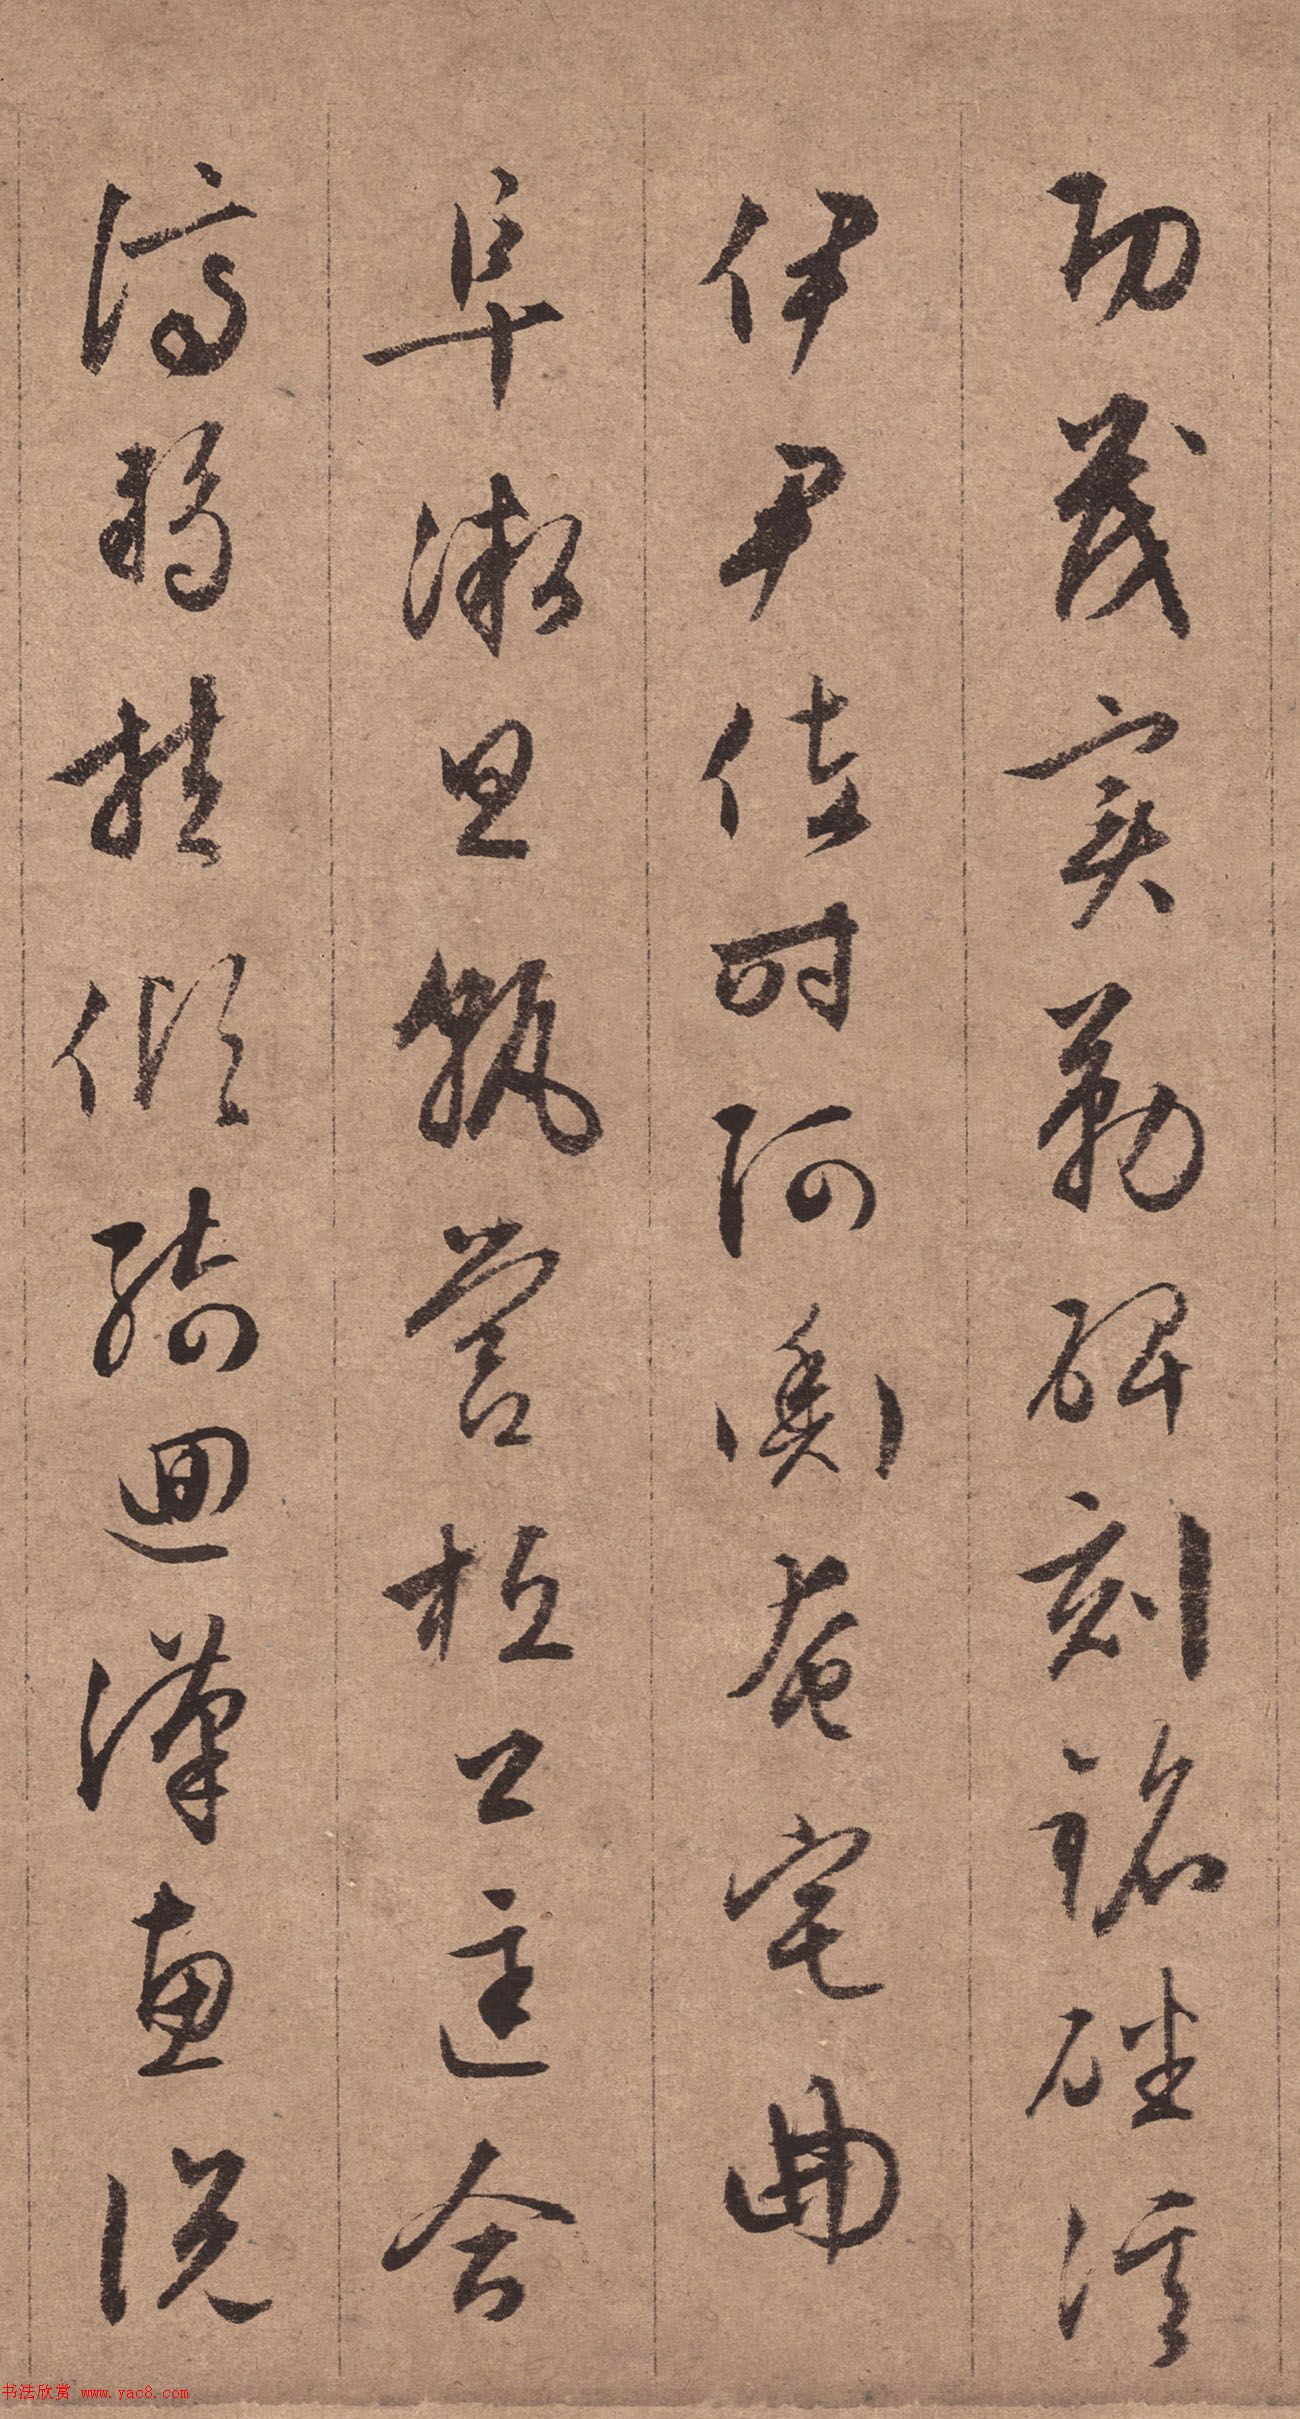 功茂實勒碑刻銘磻溪
伊尹佐時阿衡奄宅曲
阜微旦孰營桓公匡合
濟弱扶傾綺迴漢惠說
书法欣赏 www.yac8.com